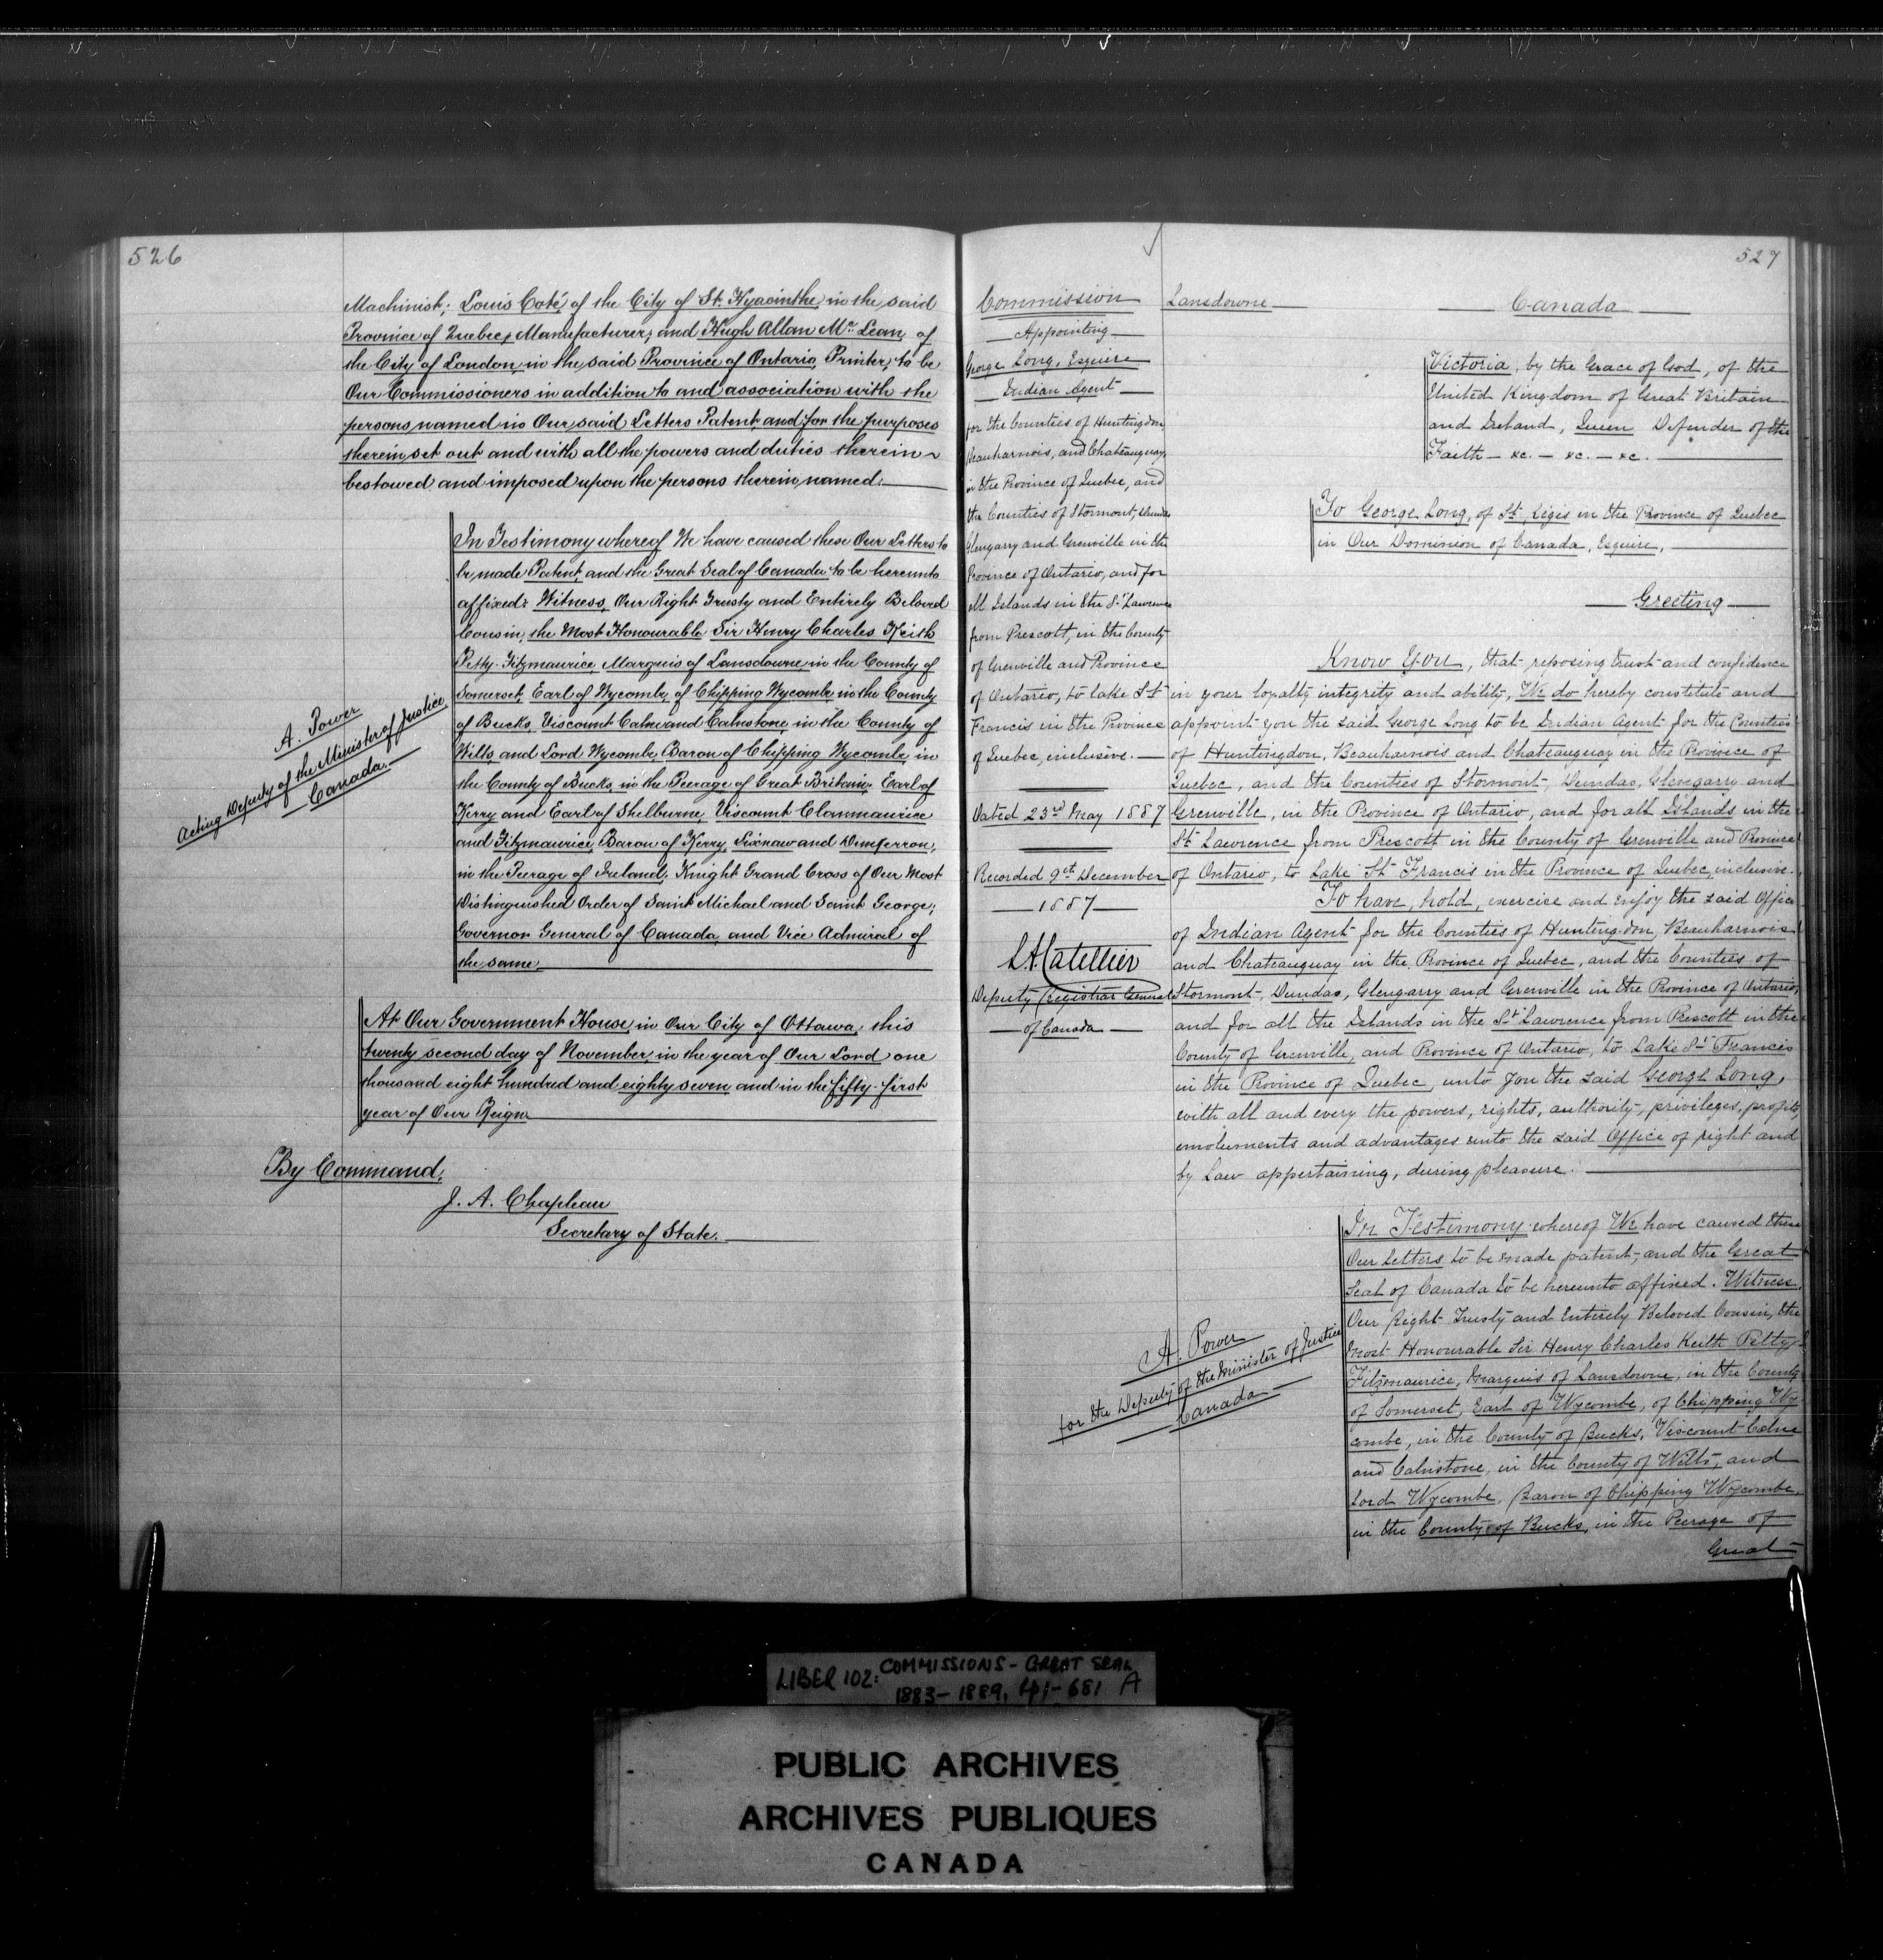 526
Machinist; Louis Coté, of the City of St. Hyacinthe in the said
Province of Quebec, Manufacturer; and Hugh Allan Mc. Lean, of
the City of London, in the said Province of Ontario, Printer, to be
Our Commissioners in addition to and association with the
persons named in Our said Letters Patent, and for the purposes
therein set out and with all the powers and duties therein
bestowed and imposed upon the persons therein named.
In Testimony whereof We have caused these Our Letters to
be made Patent, and the Great Seal of Canada to be hereunto
affixed: Witness, Our Right Trusty and Entirely Beloved
Cousin, the Most Honourable Sir Henry Charles Keith
Petty-Fitzmaurice, Marquis of Lansdowne in the County of
Somerset, Earl of Wycombe, of Chipping Wycombe in the County
of Bucks, Viscount Calne and Calnstone, in the County of
Wilts, and Lord Wycombe, Baron of Chipping Wycombe, in
the County of Bucks, in the Peerage of Great Britain; Earl of
Kerry and Earl of Shelburne, Viscount Clanmaurice
and Fitzmaurice, Baron of Kerry, Lixnaw and Dunkerron,
in the Peerage of Ireland; Knight Grand Cross of Our Most
Distinguished Order of Saint Michael and Saint George;
Governor General of Canada, and Vice Admiral of
the same.
A. Power
Acting Deputy of the Minister of Justice
Canada.
At Our Government House in Our City of Ottawa, this
twenty second day of November, in the year of Our Lord one
thousand eight hundred and eighty seven and in the fifty-first
year of Our Reign.
By Command,
J. A. Chapleau
Secretary of State.
527
Commission
Appointing
George Long, Esquire
Indian Agent
for the Counties of Huntingdon,
Beauharnois, and Chateauguay,
in the Province of Quebec, and
the Counties of Stormont, Dundas
Glengarry and Grenville in the
Province of Ontario, and for
all Islands in the St Lawrence
from Prescott, in the County
of Grenville and Province
of Ontario, to Lake St
Francis in the Province
of Quebec, inclusive.
Dated 23rd May 1887
Recorded 9th December
1887
L.A. Catellier
Deputy Registrar General
of Canada
Lansdowne
Canada
Victoria, by the Grace of God, of the
United Kingdom of Great Britain
and Ireland, Queen Defender of the
Faith - &c. - &c. - &c.
To George Long, of St. Regis in the Province of Quebec
in Our Dominion of Canada, Esquire,
Greeting
Know You, that reposing trust and confidence
in your loyalty integrity and ability, We do hereby constitute and
appoint you the said George Long to be Indian Agent for the Counties
of Huntingdon, Beauharnois and Chateauguay in the Province of
Quebec, and the Counties of Stormont, Dundas, Glengarry and
Grenville, in the Province of Ontario, and for all Islands in the
St. Lawrence from Prescott in the County of Grenville and Province
of Ontario, to Lake St. Francis in the Province of Quebec, inclusive.
To have, hold, exercise and enjoy the said Office
of Indian Agent for the Counties of Huntingdon, Beauharnois
and Chateauguay in the Province of Quebec, and the Counties of
Stormont, Dundas, Glengarry and Grenville in the Province of Ontario,
and for all the Islands in the St. Lawrence from Prescott in the
County of Grenville, and Province of Ontario, to Lake St. Francis
in the Province of Quebec, unto you the said George Long,
with all and every the powers, rights, authority, privileges, profits,
emoluments and advantages unto the said Office of right and
by Law appertaining, during pleasure.
In Testimony whereof We have caused these
Our Letters to be made patent, and the Great
Seal of Canada to be hereunto affixed. Witness,
Our Right Trusty and Entirely Beloved Cousin, the
Most Honourable Sir Henry Charles Keith Petty-
Fitzmaurice, Marquis of Lansdowne, in the County
of Somerset, Earl of Wycombe, of Chipping Wy-
combe, in the County of Bucks, Viscount Calne
and Calnstone, in the County of Wilts, and
Lord Wycombe, Baron of Chipping Wycombe,
in the County of Bucks, in the Peerage of
Great
A. Power
for the Deputy of the Minister of Justice
Canada
LIBER 102: COMMISSIONS - GREAT SEAL
1883-1889, pp 1-681 A
PUBLIC ARCHIVES
ARCHIVES PUBLIQUES
CANADA